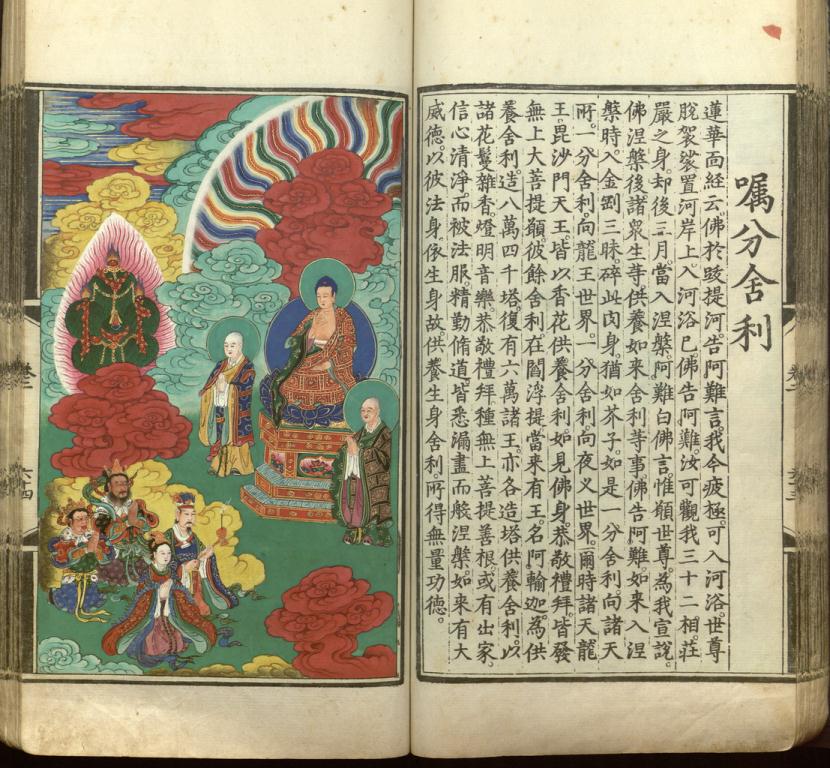 囑分舍利
蓮華面經云。佛於跋提河。告阿難言。我今疲極。可入河浴。世尊
脫袈裟置河岸上入河浴已。佛告阿難。汝可觀我三十二相。莊
嚴之身。却後三月。當入涅槃。阿難白佛言。惟願世尊。為我宣說。
佛涅槃後諸眾生等供養如來舍利等事。佛告阿難。如來入涅
槃時。入金剛三昧。碎此肉身。猶如芥子。如是一分舍利。向諸天
所。一分舍利。向龍王世界。一分舍利。向夜义世界。爾時諸天龍
王。毘沙門天王。皆以香花供養舍利。如見佛身。恭敬禮拜。皆發
無上大菩提願。彼餘舍利。在閻浮提。當來有王。名阿輸迦。為供
養舍利。造八萬四千塔。復有六萬諸王。亦各造塔。供養舍利。以
諸花鬘。雜香。燈明。音樂。恭敬禮拜。種無上菩提善根。或有出家。
信心清淨。而被法服。精勤脩道。皆悉漏盡而般涅槃。如來有大
威德。以彼法身。依生身故。供養生身舍利。所得無量功德。
卷二
六十三
卷二
六十四